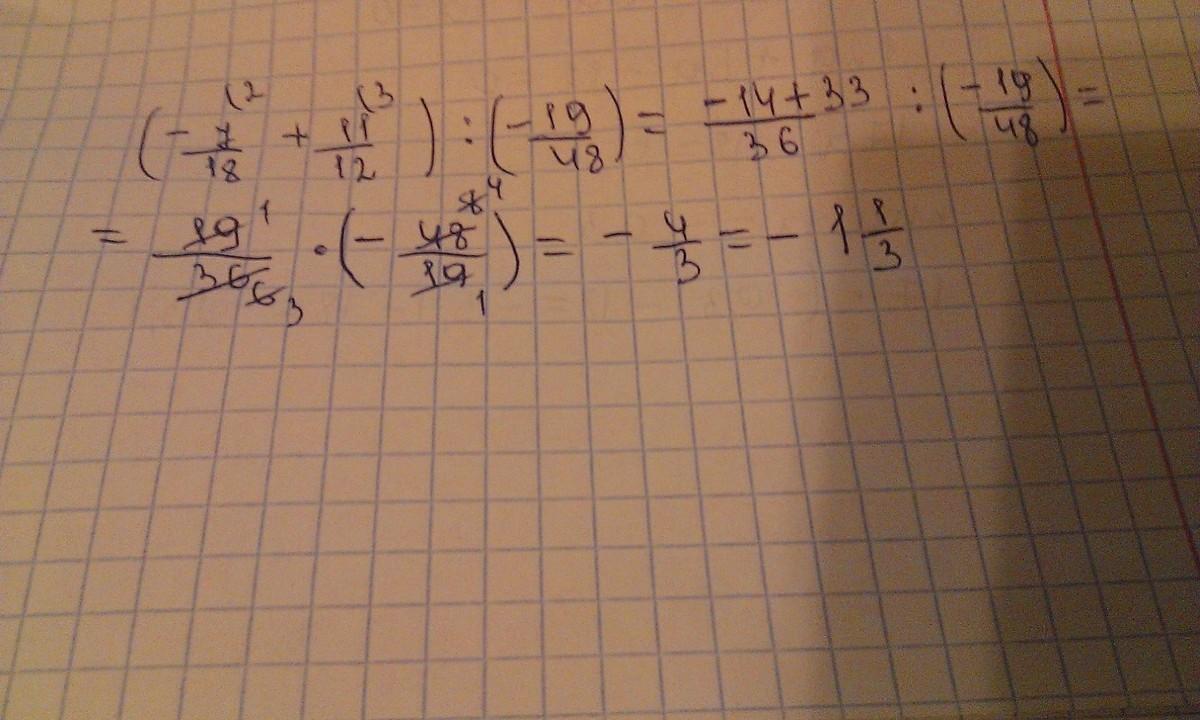 (- 7/18 (2 + 11/12 (3) : (- 19/48) = -14+33/36 : (- 19/48) =
= 19 1/36 6 3 · (- 48 8 4/19 1) = - 4/3 = - 1 1/3